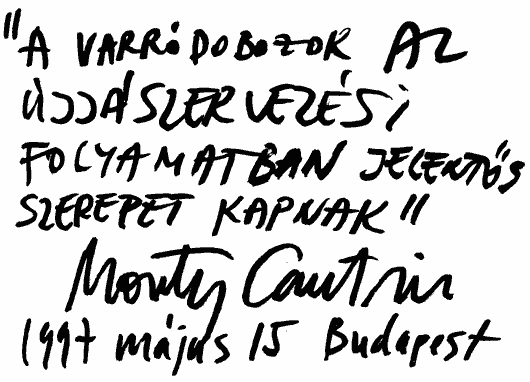 "A VARRÓDOBOZOK AZ
ÚJJÁSZERVEZÉSI
FOLYAMATBAN JELENTŐS
SZEREPET KAPNAK"
Monty Cantsin
1997 május 15 Budapest